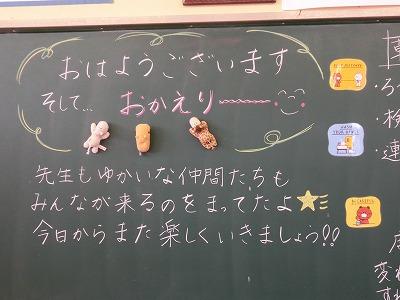 おはようございます
そして… おかえり〜〜〜
先生もゆかいな仲間たちも
みんなが来るのをまってたよ
今日からまた楽しくいきましょう!!
WASH YOUR HANDS!
BE CAREFUL